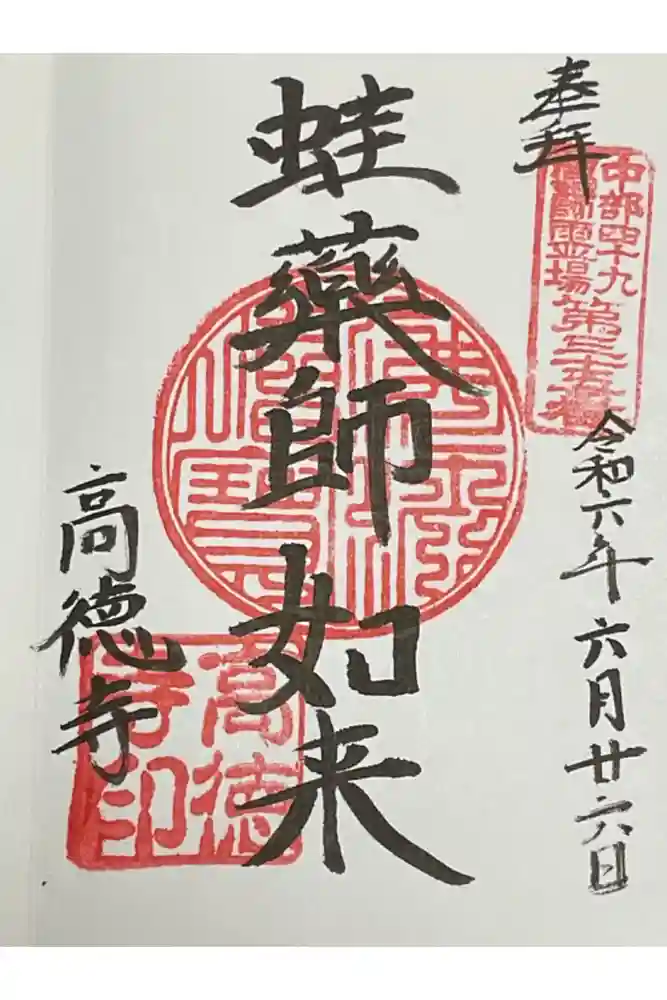 奉拝
中部四十九
薬師霊場第三十五番
令和六年六月廿六日
蛙藥師如来
高徳寺
高徳
寺印